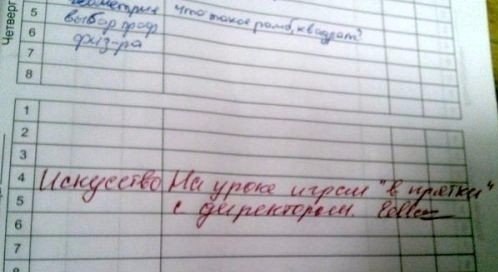 Четверг
5 геометрия Что такое ромб, квадрат?
6 выбор проф
7 физ-ра
8
1
2
3
4 Искусство На уроке играем "в прятки"
5 с директором.
6
7
8